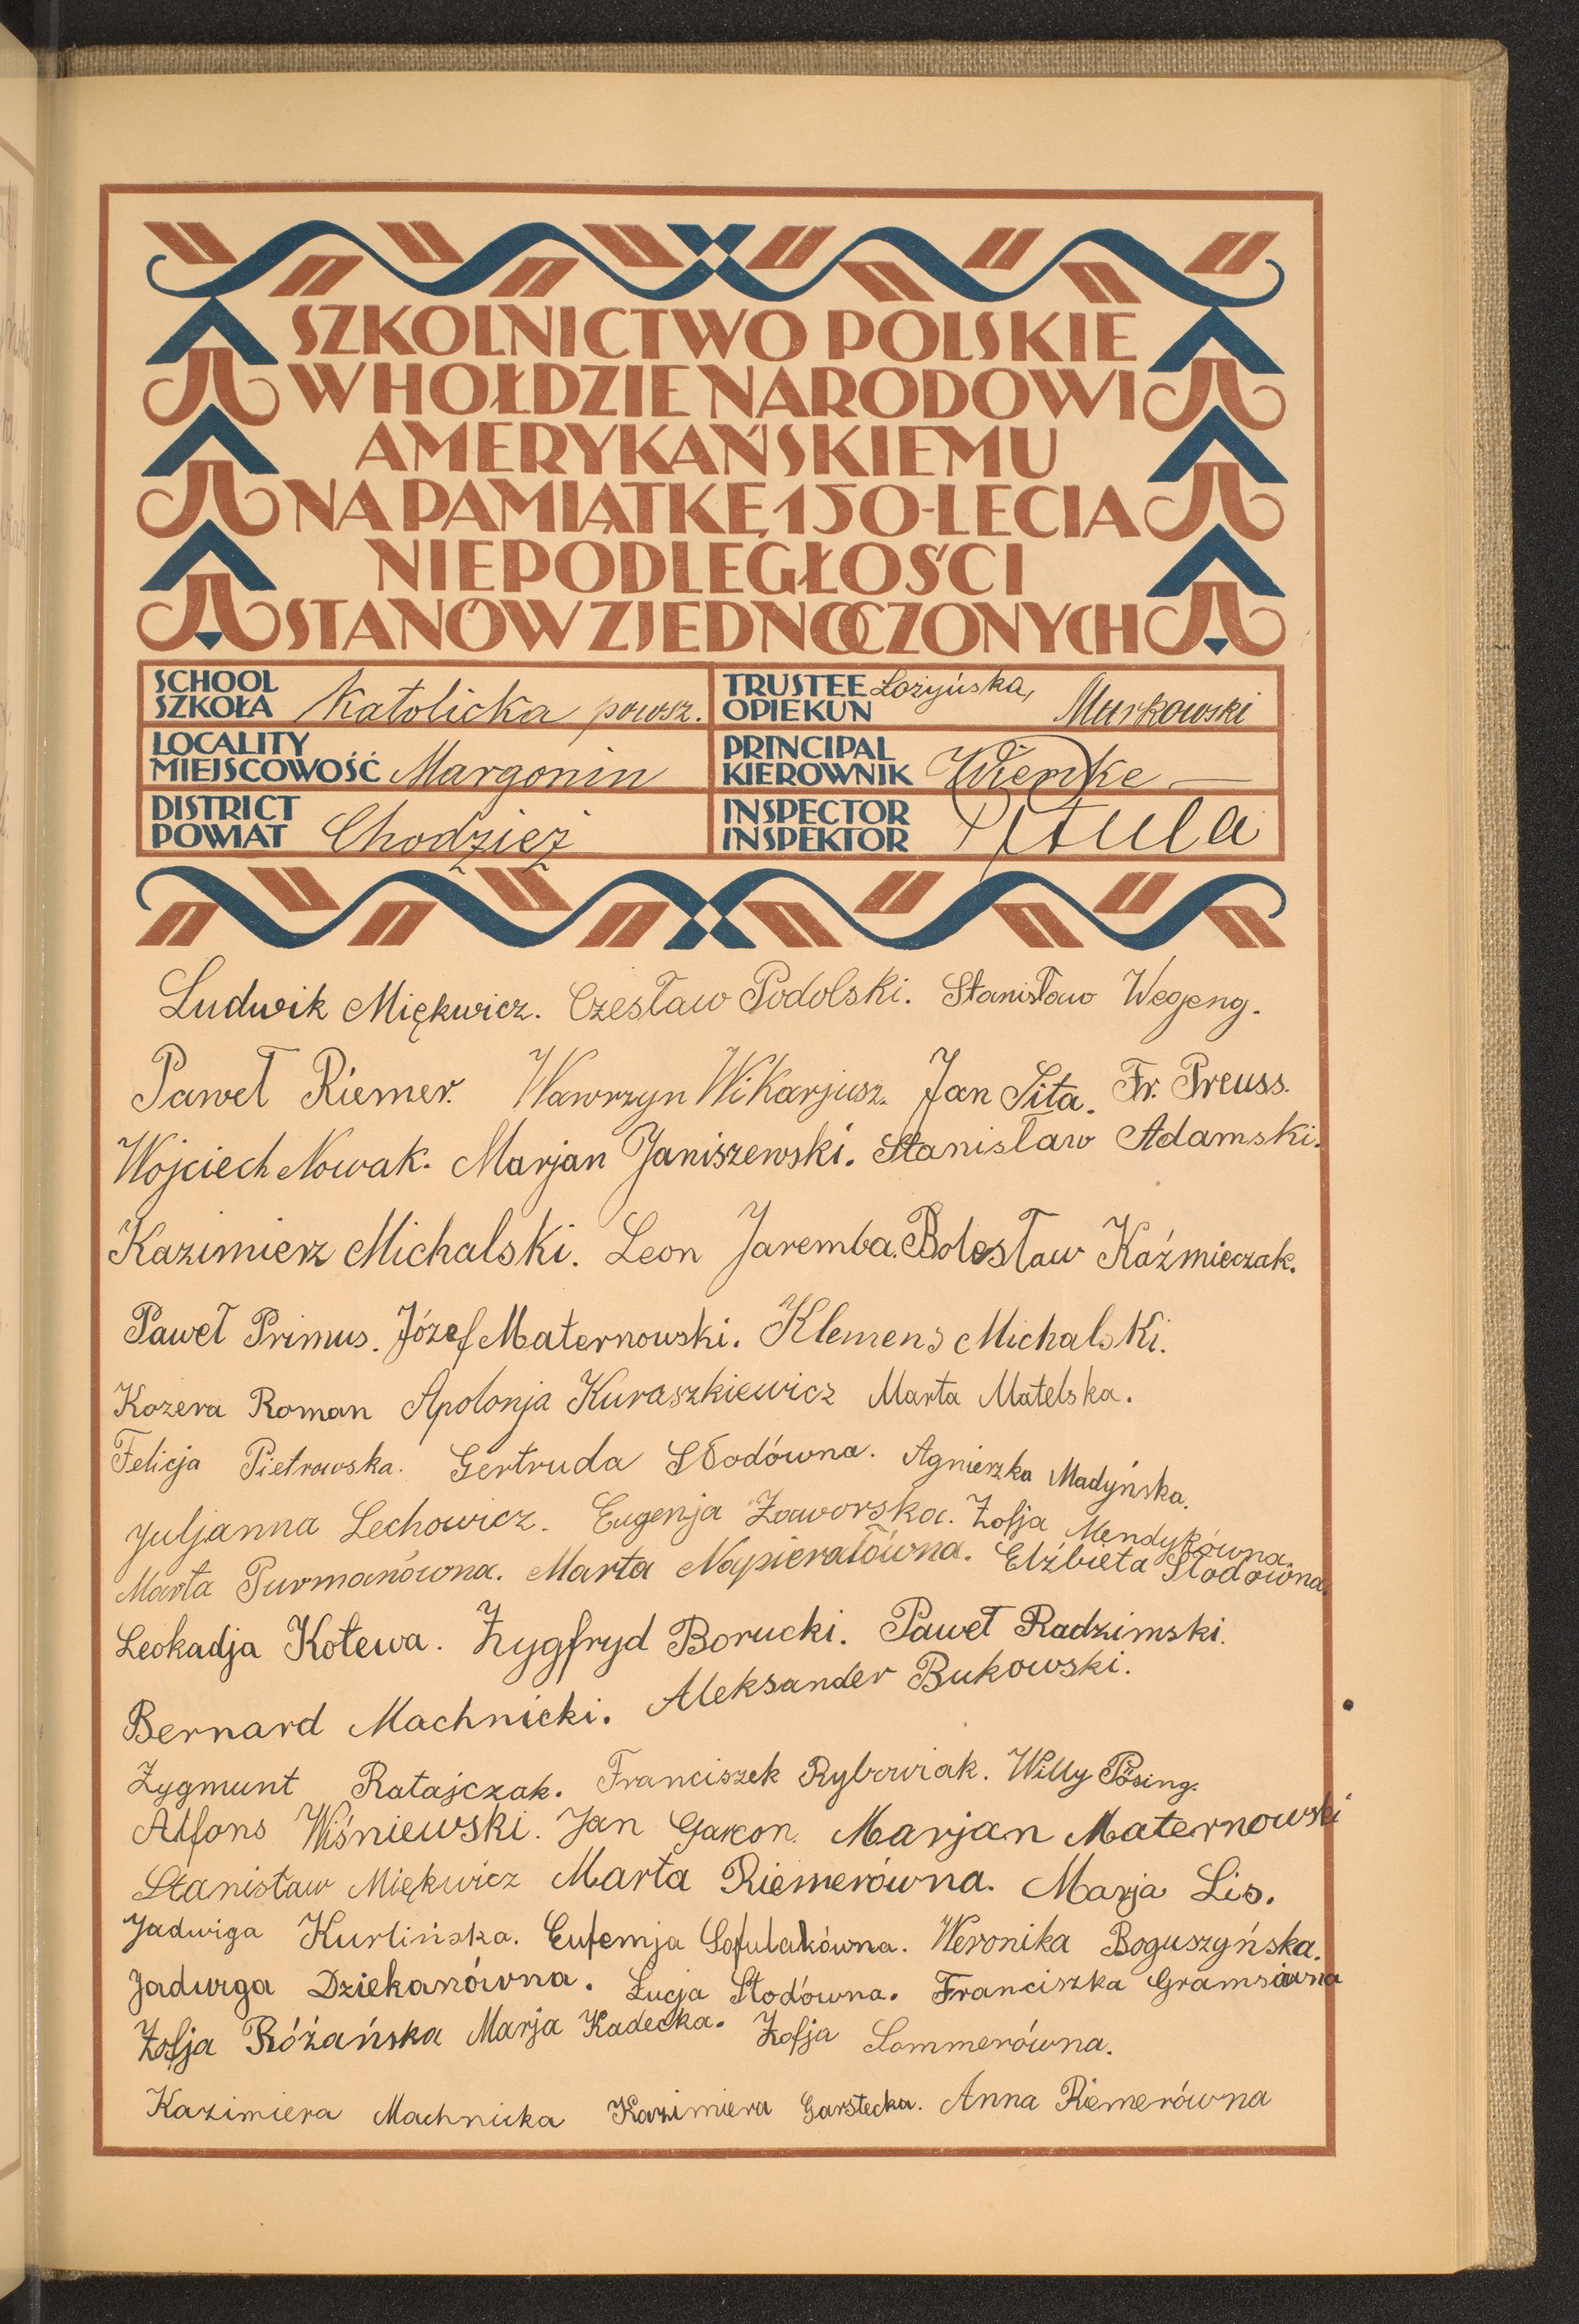 SZKOLNICTWO POLSKIE
W HOŁDZIE NARODOWI
AMERYKAŃSKIEMU
NA PAMIĄTKĘ 150-LECIA
NIEPODLEGŁOŚCI
STANÓW ZJEDNOCZONYCH
SCHOOL
SZKOŁA Katolicka powsz.
TRUSTEE
OPIEKUN Łożyńska, Murkowski
LOCALITY
MIEJSCOWOŚĆ Margonin
PRINCIPAL
KIEROWNIK Wiemke
DISTRICT
POWIAT Chodzież
INSPECTOR
INSPEKTOR
Ludwik Miękwicz. Czesław Podolski. Stanisław Wegeng.
Paweł Riemer. Wawrzyn Wikarjusz. Jan Sita. Fr. Preuss.
Wojciech Nowak. Marjan Janiszewski. Stanisław Adamski.
Kazimierz Michalski. Leon Jaremba. Bolesław Kaźmieczak.
Paweł Primus. Józef Maternowski. Klemens Michalski.
Kozera Roman Apolonja Kuraszkiewicz Marta Matelska.
Felicja Pietrowska. Gertruda Słodówna. Agnieszka Madyńska.
Juljanna Lechowicz. Eugenja Zaworska. Zofja Mendykówna.
Marta Purmanówna. Marta Napierałówna. Elżbieta Słodówna.
Leokadja Kotewa. Zygfryd Borucki. Paweł Radzimski.
Bernard Machnicki. Aleksander Bukowski.
Zygmunt Ratajczak. Franciszek Rybowiak. Willy Pösing.
Alfons Wiśniewski. Jan Garcon. Marjan Maternowski
Stanisław Miękwicz Marta Riemerówna. Marja Lis.
Jadwiga Kurlińska. Eufemja Sofulakówna. Weronika Boguszyńska.
Jadwiga Dziekanówna. Łucja Słodówna. Franciszka Gramsówna
Zofja Różańska Marja Kadecka. Zofja Sommerówna.
Kazimiera Machnicka Kazimiera Garstecka. Anna Riemerówna